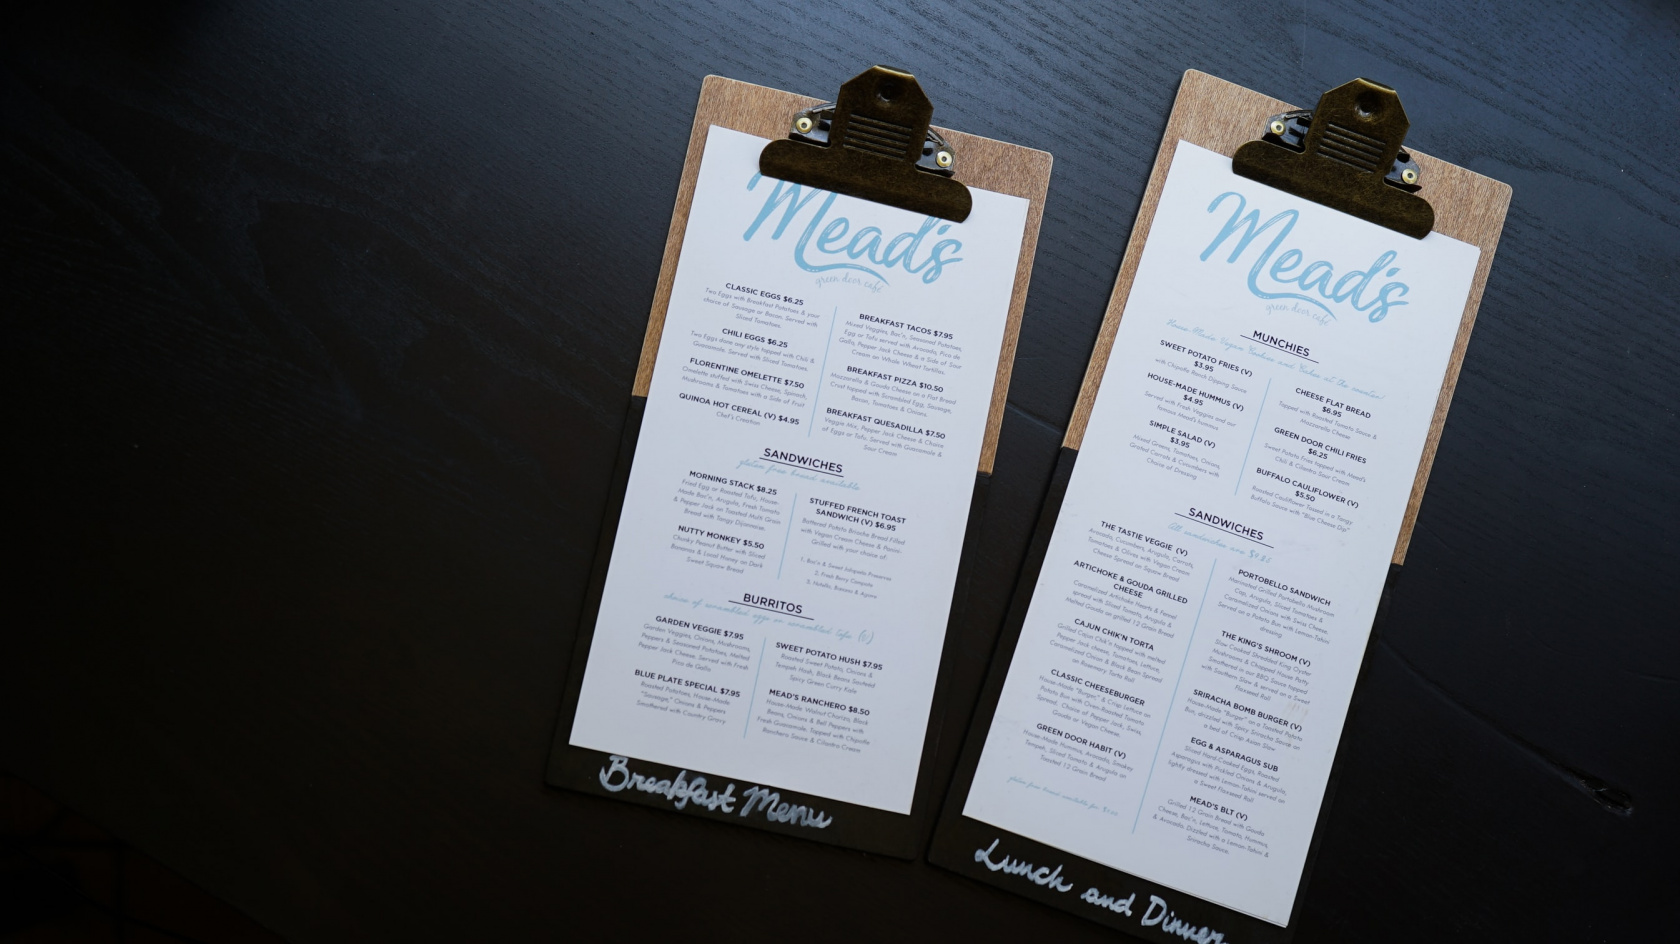 Mead's
green door café
CLASSIC EGGS $6.25
Two Eggs with Breakfast Potatoes & your
choice of Sausage or Bacon. Served with
Sliced Tomatoes.
CHILI EGGS $6.25
Two Eggs done any style topped with Chili &
Guacamole. Served with Sliced Tomatoes.
FLORENTINE OMELETTE $7.50
Omelette stuffed with Swiss Cheese, Spinach,
Mushrooms & Tomatoes with a Side of Fruit
QUINOA HOT CEREAL (V) $4.95
Chef's Creation
BREAKFAST TACOS $7.95
Mixed Veggies, Bac'n, Seasoned Potatoes,
Egg or Tofu served with Avocado, Pico de
Gallo, Pepper Jack Cheese & a Side of Sour
Cream w/ Whole Wheat Tortillas.
BREAKFAST PIZZA $10.50
Mozzarella & Gouda Cheese on a Flat Bread
Crust topped with Scrambled Egg, Sausage,
Bacon, Tomatoes & Onions.
BREAKFAST QUESADILLA $7.50
Veggie Mix, Pepper Jack Cheese & Choice
of Eggs or Tofu. Served with Guacamole &
Sour Cream
SANDWICHES
gluten free bread available
MORNING STACK $8.25
Fried Egg or Roasted Tofu, House-
Made Bac'n, Arugula, Fresh Tomato
& Pepper Jack on Toasted Multi Grain
Bread with Tangy
NUTTY MONKEY $5.50
Chunky Peanut Butter with Sliced
Bananas & Local Honey on Dark
Sweet Squaw Bread
STUFFED FRENCH TOAST
SANDWICH (V) $6.95
Battered Potato Brioche Bread Filled
with Vegan Cream Cheese &
Grilled with your choice of:
1. Bac'n & Sweet Jalapeño Preserves
2. Fresh Berry Compote
3. Nutella, Banana & Agave
BURRITOS
choice of scrambled eggs or scrambled tofu (V)
GARDEN VEGGIE $7.95
Garden Veggies, Onions, Mushrooms,
Peppers & Seasoned Potatoes, Melted
Pepper Jack Cheese. Served with Fresh
Pico de Gallo
BLUE PLATE SPECIAL $7.95
Roasted Potatoes, House-Made
"Sausage," Onions & Peppers
Smothered with Country Gravy
SWEET POTATO HUSH $7.95
Roasted Sweet Potato, Onions &
Tempeh Hash, Black Beans Sauteed
Spicy Green Curry Kale
MEAD'S RANCHERO $8.50
House-Made Walnut Chorizo, Black
Beans, Onions & Bell Peppers with
Fresh Guacamole. Topped with Chipotle
Ranchero Sauce & Cilantro Cream
Breakfast Menu
Mead's
green door café
House-Made Vegan Cookies and Cakes at the counter
MUNCHIES
SWEET POTATO FRIES (V)
$3.95
with Chipotle Ranch Dipping Sauce
HOUSE-MADE HUMMUS (V)
$4.95
Served with Fresh Veggies and our
famous Mead's hummus
SIMPLE SALAD (V)
$3.95
Mixed Greens, Tomatoes, Onions,
Grated Carrots & Cucumbers with
Choice of Dressing
CHEESE FLAT BREAD
$6.95
Topped with Roasted Tomato Sauce &
Mozzarella Cheese
GREEN DOOR CHILI FRIES
$6.25
Sweet Potato Fries topped with Mead's
Chili & Cilantro Sour Cream
BUFFALO CAULIFLOWER (V)
$5.50
Roasted Cauliflower Tossed in a Tangy
Buffalo Sauce with "Blue Cheese Dip"
SANDWICHES
All sandwiches are
THE TASTIE VEGGIE (V)
Avocado, Cucumbers, Arugula, Carrots,
Tomatoes & Olives with Vegan Cream
Cheese Spread on Squaw Bread
ARTICHOKE & GOUDA GRILLED
CHEESE
Caramelized Artichoke Hearts & Fennel
spread with Sliced Tomato, Arugula &
Melted Gouda on grilled 12 Grain Bread
CAJUN CHIK'N TORTA
Grilled Cajun Chik'n topped with melted
Pepper Jack cheese, Tomatoes, Lettuce,
Caramelized Onion & Black Bean Spread
on Rosemary Torta Roll
CLASSIC CHEESEBURGER
House-Made "Burger" & Crisp Lettuce on
Potato Bun with Oven-Roasted Tomato
Spread. Choice of Pepper Jack, Swiss,
Gouda or Vegan Cheese.
GREEN DOOR HABIT (V)
House-Made Hummus, Avocado, Smokey
Tempeh, Sliced Tomato & Arugula on
Toasted 12 Grain Bread
gluten free bread available for
PORTOBELLO SANDWICH
Marinated Grilled Portobello Mushroom
Cap, Arugula, Sliced Tomatoes &
Caramelized Onions with Swiss Cheese.
Served on a Potato Bun with Lemon-Tahini
dressing.
THE KING'S SHROOM (V)
Slow Cooked Shredded King Oyster
Mushrooms & Chopped House Patty
Smothered in our BBQ Sauce topped
with Southern Slaw & served on a Sweet
Flaxseed Roll
SRIRACHA BOMB BURGER (V)
House-Made "Burger" on a Toasted Potato
Bun, drizzled with Spicy Sriracha Sauce on
a bed of Crisp Asian Slaw
EGG & ASPARAGUS SUB
Sliced Hard-Cooked Eggs, Roasted
Asparagus with Pickled Onions & Arugula,
lightly dressed with Lemon-Tahini served on
a Sweet Flaxseed Roll
MEAD'S BLT (V)
Grilled 12 Grain Bread with Gouda
Cheese, Bac'n, Lettuce, Tomato, Hummus,
& Avocado. Dizzled with a Lemon-Tahini &
Sriracha Sauce.
Lunch and Dinner